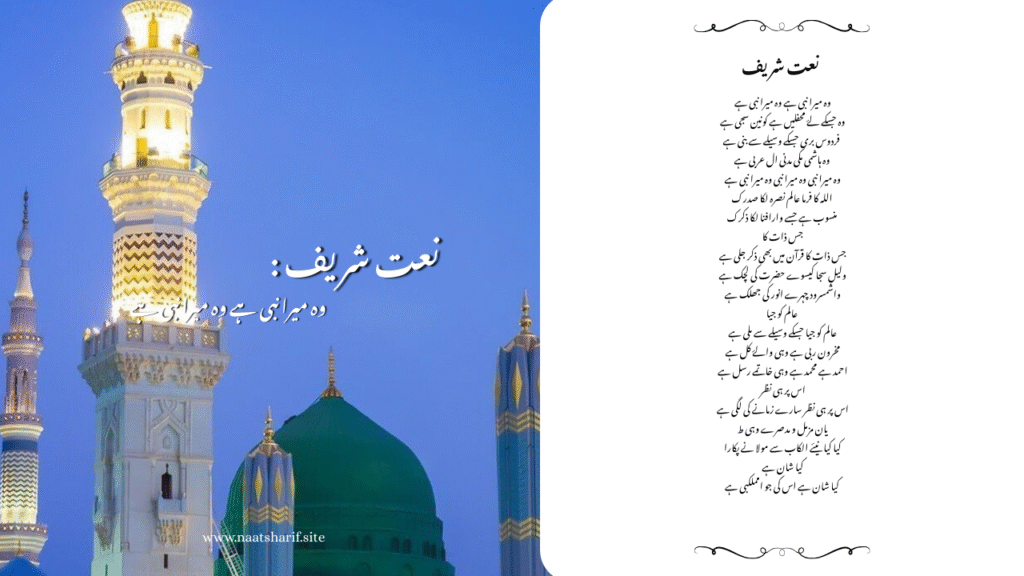 نعت شریف :
وہ میرا نبی ہے وہ میرا نبی ہے
www.naatsharif.site
نعت شریف
وہ میرا نبی ہے وہ میرا نبی ہے
وہ جسکے لے محفلیں ہے کونین سجی ہے
فردوس بری جسکے وسیلے سے بنی ہے
وہ ہاشمی مکی مدنی ال عربی ہے
وہ میرا نبی وہ میرا نبی وہ میرا نبی ہے
اللہ کا فرما عالم نصرہ لکا صدرک
منسوب ہے جسے وارافنا لکا ذکرک
جس ذات کا
جس ذات کا قرآن میں بھی ذکر جلی ہے
ولیل سجا کیسوے حضرت کی لچک ہے
واشمسرود چہرے انور کی جھلک ہے
عالم کو جیا
عالم کو جیا جسکے وسیلے سے ملی ہے
مخرون ربی ہے وہی والے کل ہے
احمد ہے محمد ہے وہی خاتے رسل ہے
اس پر ہی نظر
اس پر ہی نظر سارے زمانے کی لگی ہے
یان مزمل و مدصرے وہی ط
کیا کیا نیئے الکاب سے مولا نے پکارا
کیا شان ہے
کیا شان ہے اس کی جو